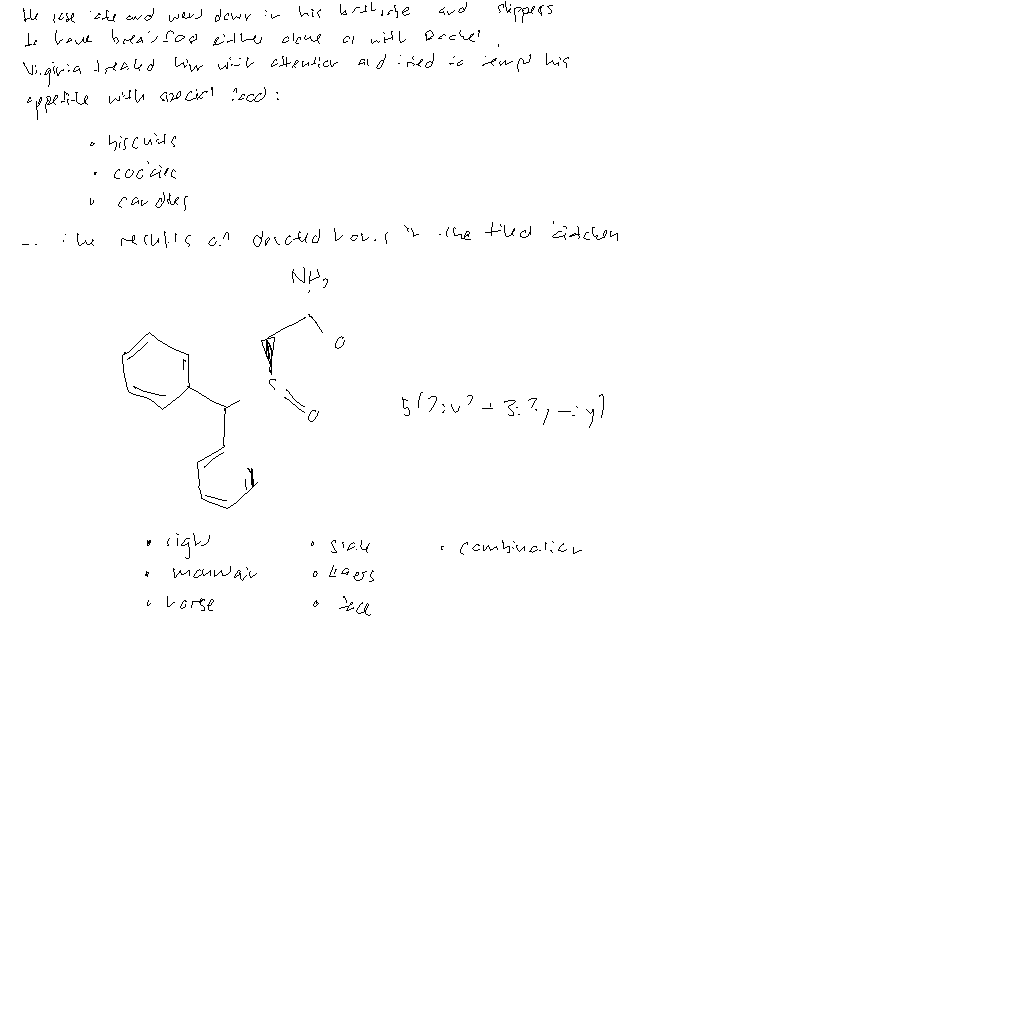 He rose late and went down in his bathrobe and slippers
to have breakfast either alone or with Rachel.
Virginia treated him with attention and tried to tempt his
appetite with special food:
• biscuits
• cookies
• candies
– the results of devoted hours in the tiled kitchen
NH2
O
S
O
• right
• mountain
• horse
• side
• tigers
• face
• combination